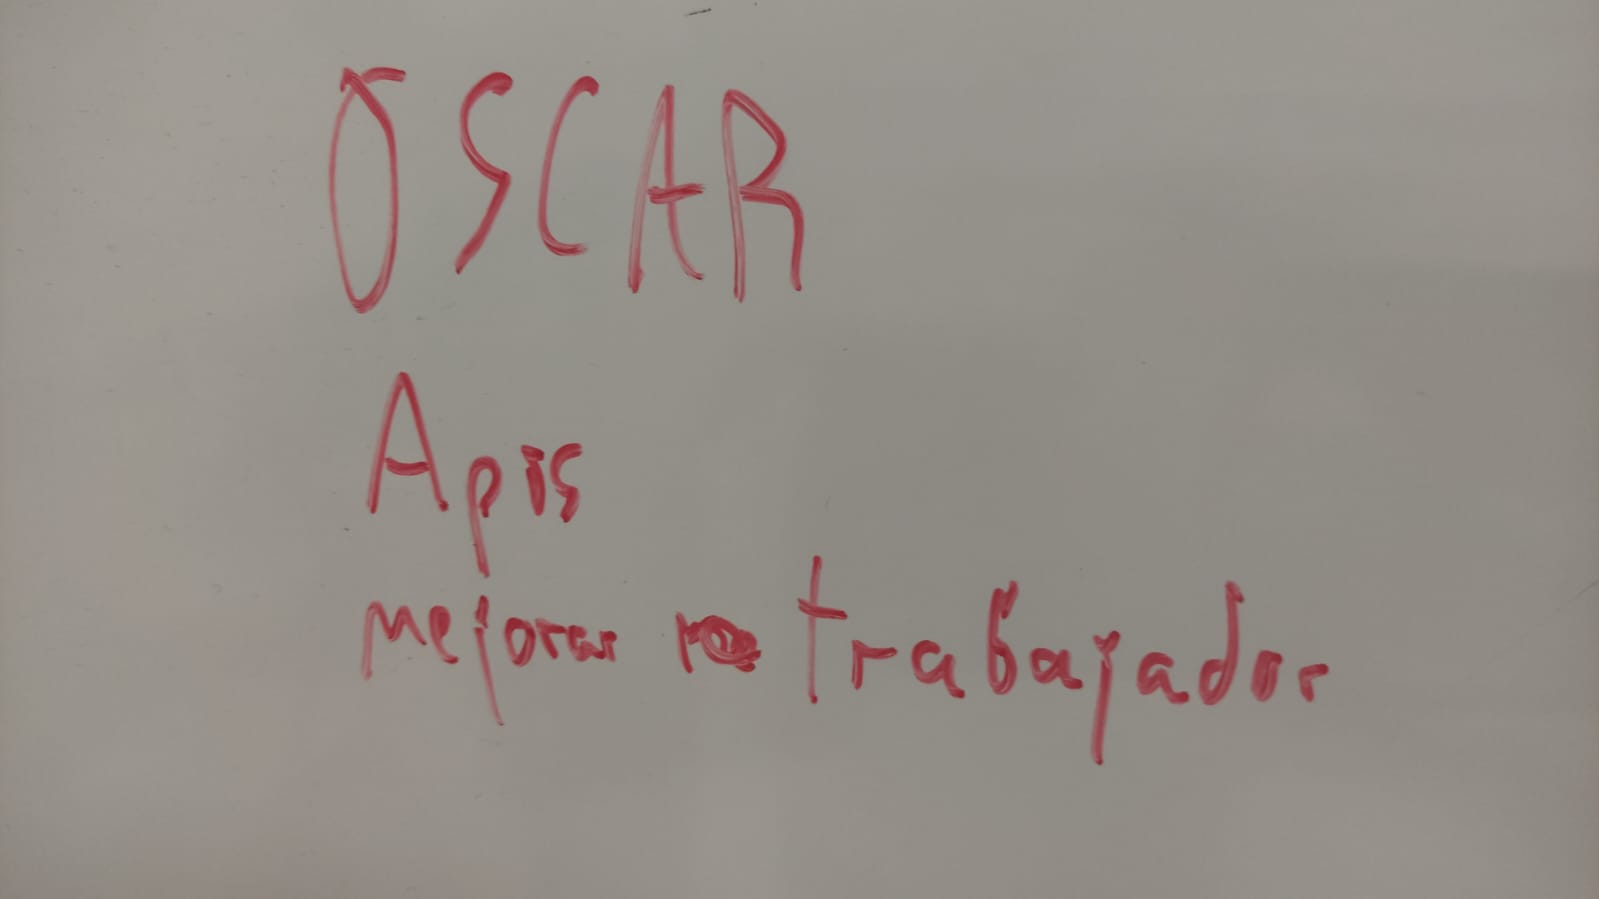 OSCAR
Apis
mejorar trabajador